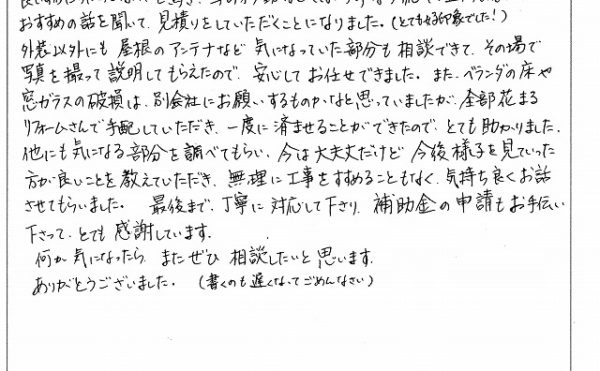 おすすめの話を聞いて、見積りをしていただくことになりました。(とても好印象でした!)
外装以外にも 屋根のアンテナなど 気になっていた部分も相談できて、その場で
写真を撮って説明してもらえたので、安心してお任せできました。また、ベランダの床や
窓ガラスの破損は、別会社にお願いするものかなと思っていましたが、全部花まる
リフォームさんで手配していただき、一度に済ませることができたので、とても助かりました。
他にも気になる部分を調べてもらい、今は大丈夫だけど 今後様子を見ていった
方が良いことを教えていただき、無理に工事をすすめることもなく、気持ち良くお話
させてもらいました。 最後まで、丁寧に対応して下さり、補助金の申請もお手伝い
下さって、とても感謝しています。
何か気になったら、またぜひ 相談したいと思います。
ありがとうございました。 (書くのも遅くなってごめんなさい)